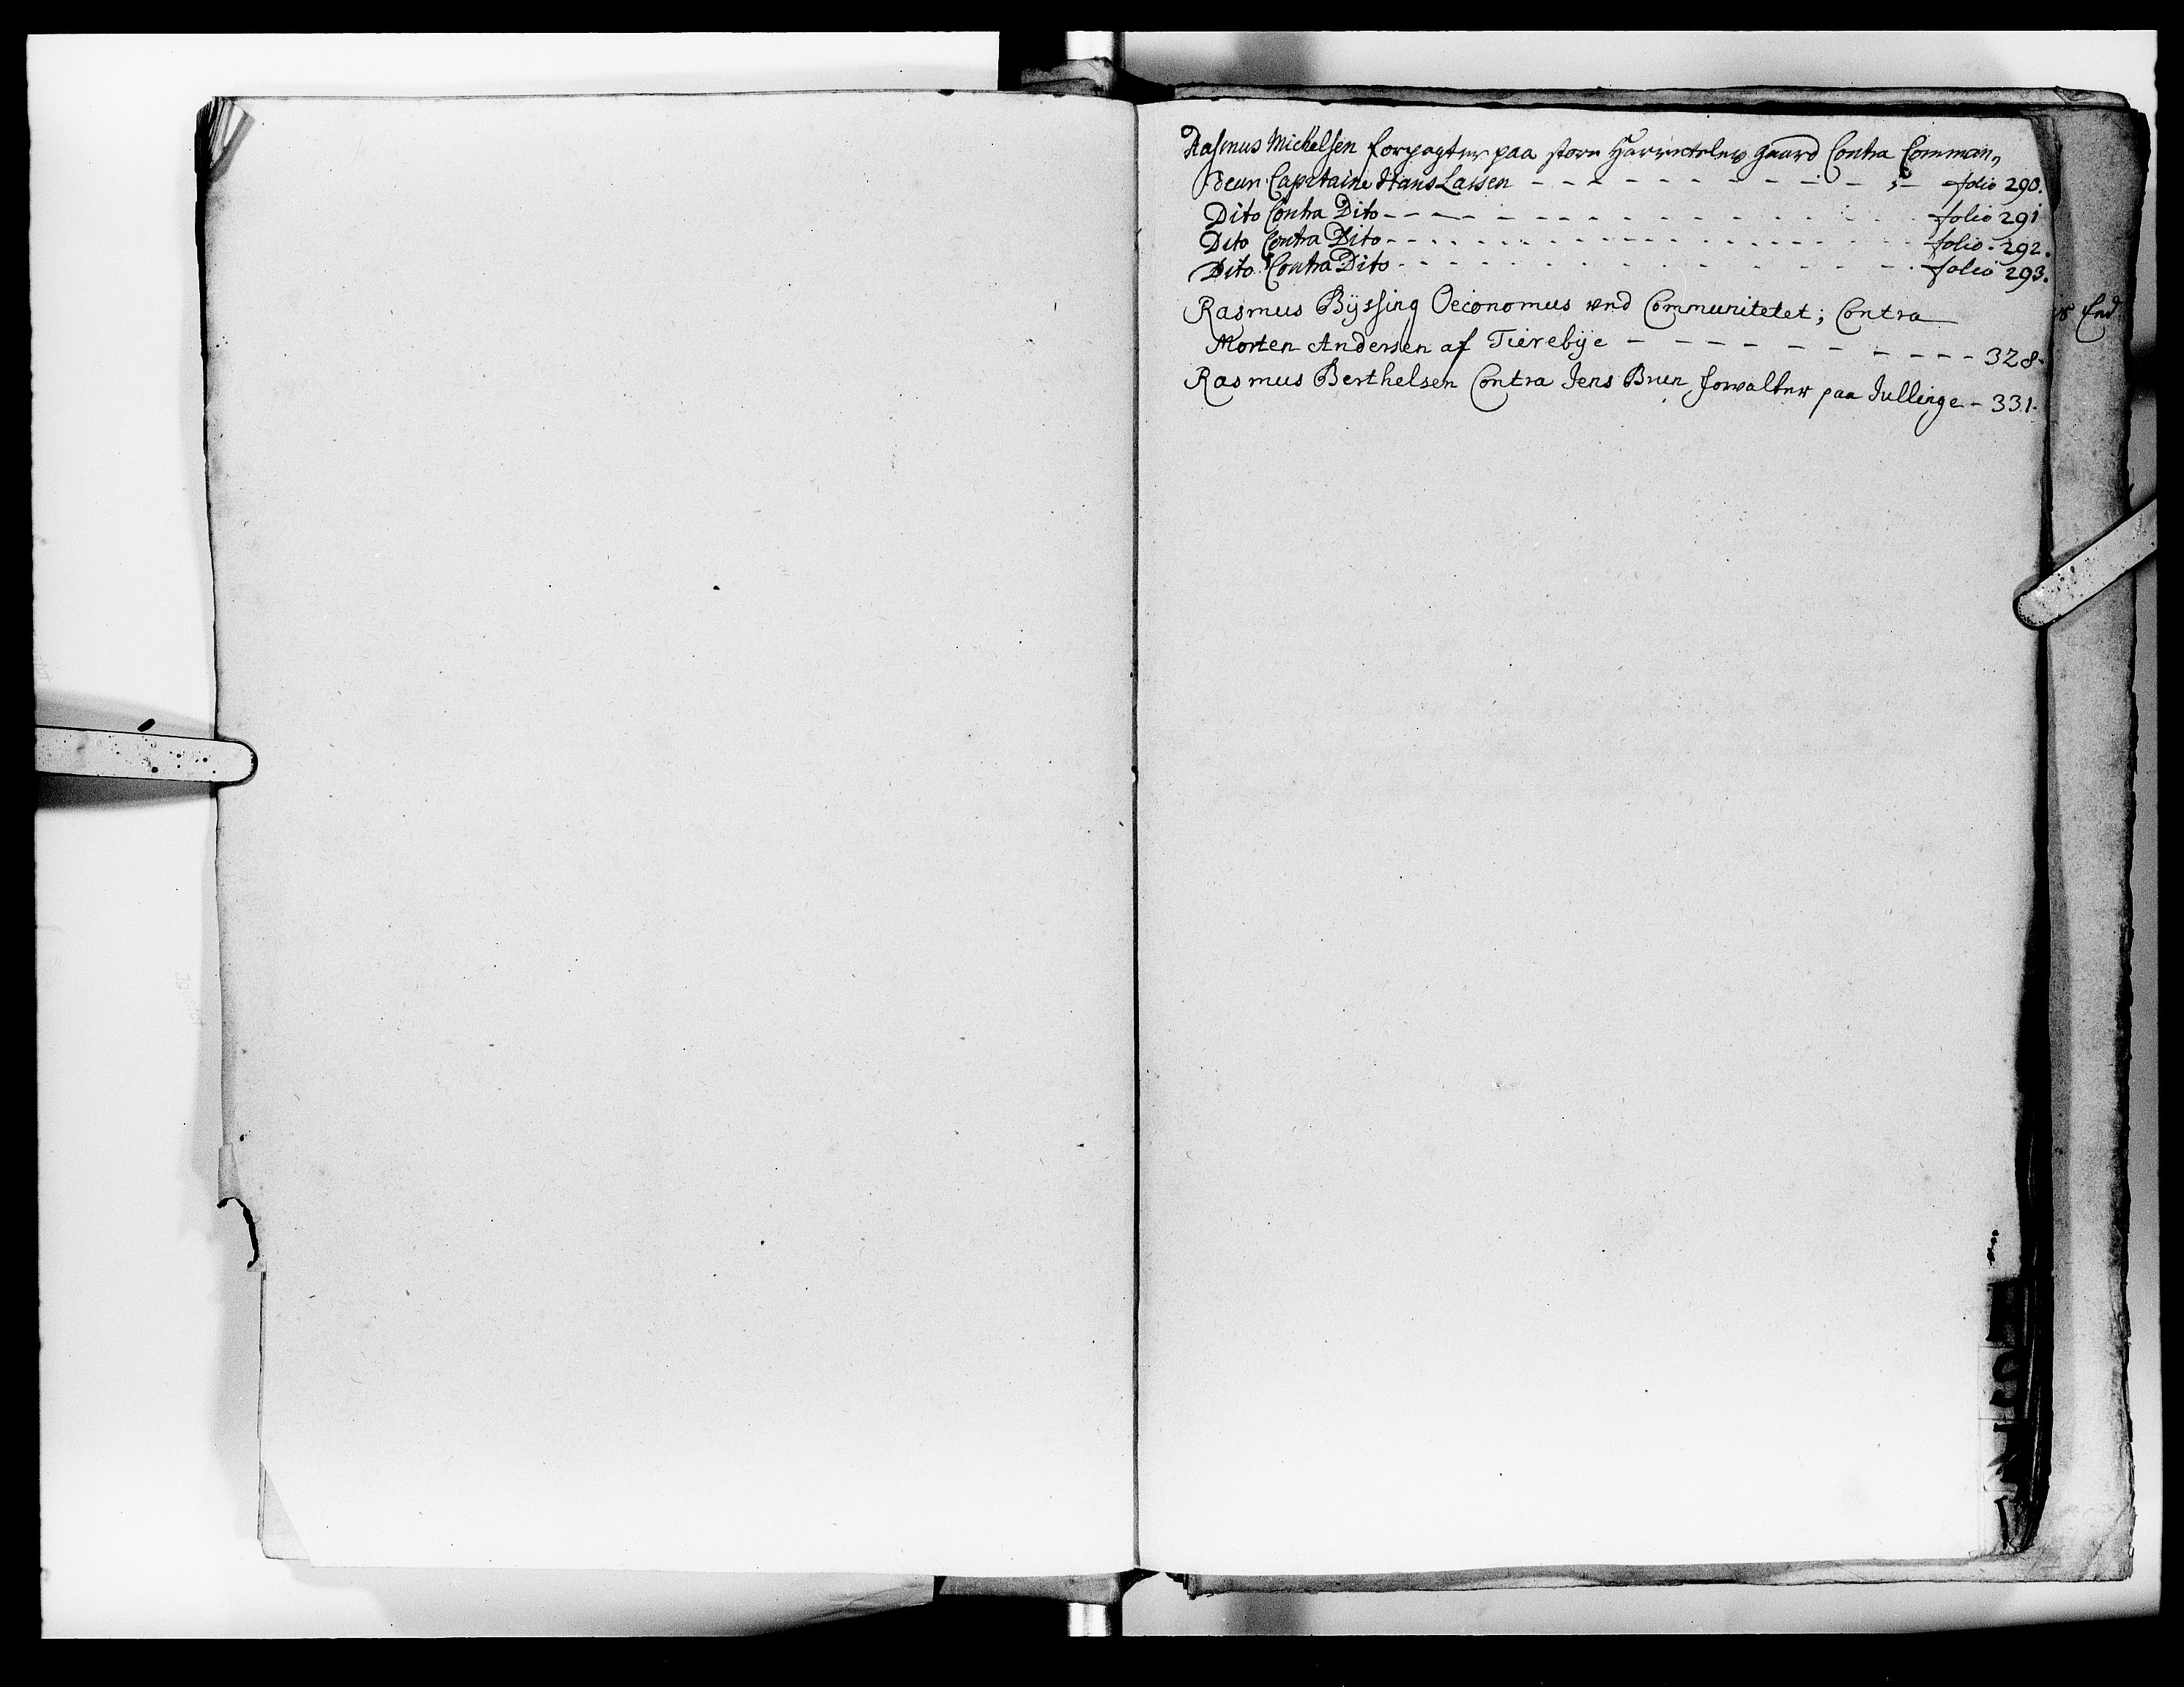 Rasmus Michelsen forpagter paa store Harrestrlev gaard Contra Comman,,
deur Capitaine Hans Lassen - - - - - - - - - - - folio 290.
Dito Contra Dito - - - - - - - - - - - folio 291
Dito Contra Dito - - - - - - - - - - - folio 292.
Dito Contra Dito - - - - - - - - - - - folio 293.
Rasmus Byssing Oeconomus ved Communitetet; Contra
Morten Andersen af Tierebÿe - - - - - - - - 328.
Rasmus Berthelsen Contra Jens Brun forvalter paa Jullinge - 331.